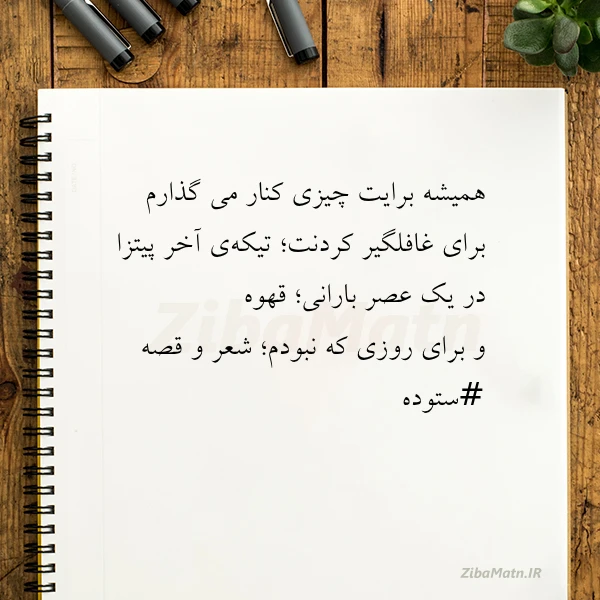 همیشه برایت چیزی کنار می گذارم
برای غافلگیر کردنت؛ تیکه‌ی آخر پیتزا
در یک عصر بارانی؛ قهوه
و برای روزی که نبودم؛ شعر و قصه
#ستوده
ZibaMatn
ZibaMatn.IR